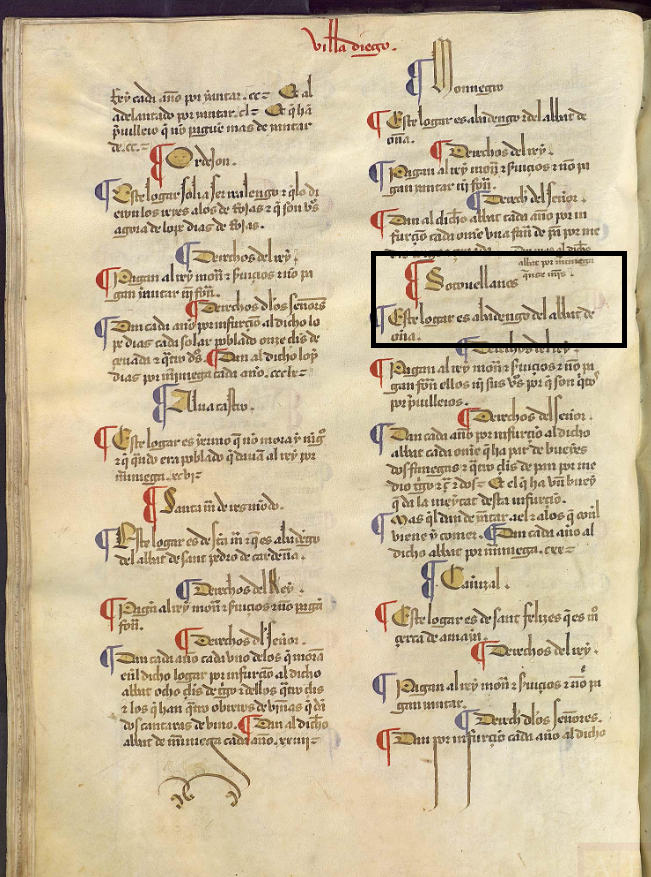 villa diego.
Rey cada año por yantar. cc= Et al
adelantado por yantar. cl= Et q̃ hã
p̃uilleio q̃ nõ pague mas de yantar
de. cc.=
Ordeion.
Este logar solia ser realengo τ q̃lo di
eron los reyes alos de Roias τ q̃ son vs̃
agora de lope dias de Roias.
Derechos del rey.
Pagan al rey mon̄ τ s̃uiçios τ nõ pa
gan yantar nj̃ fõn.
Derechos dlos señores
Dan cada año por infurçiõ al dicho lo
pe dias cada solar poblado onze çl̃s de
çeuada τ q̃tro ds̃. Dan al dicho lop̃
dias por mr̃niega cada año.
Villa castro.
Este logar es yermo q̃ nõ mora ỹ nĩgº
τ q̃ q̃ndo era poblado q̃ dauan al rey por
mr̃niega. xcvj=
Santa mr̃ de
Este logar es de sc̃a mr̃ τ q̃ es abadẽgo
del abbat de sant pedro de cardeña.
Derechos del Rey.
Pagã al rey mon̄ τ s̃uiçios τ nõ pagã
fõn.
Derechos dl señor.
Dan cada año cada vno delos q̃ morã
enl dicho logar por infurçiõ al dicho
abbat ocho çl̃s de tgõ τ dellos q̃tro çl̃s
τ los q̃ han q̃tro obreros de viñas q̃ dã
dos cantaras de vino. Dan al dicho
abbat de mr̃niega cada año. xxiiij=
Monnegro
Este logar es abadengo τ del abbat de
oña.
Derechos del rey.
Pagan al rey mon̄ τ s̃uiçios τ nõ pa
gan yantar nj̃ fõn.
Derech̃ del señor
Dan al dicho abbat cada año por in
furçiõ cada ome vna fan̄ de pã por me
Dan mas al dicho
abbat por mr̃niega
Sotouellanos
quinze mr̃s.
Este logar es abadengo del abbat de
oña.
Derechos del rey.
Pagan al rey mon̄ τ s̃uiçios τ nõ pa
gan fõn ellos nj̃ sus vs̃ por q̃ son q̃tos
por p̃uilleios.
Derechos del señor.
Dan cada año por infurçiõ al dicho
abbat cada ome q̃ ha par de bueyes
dos fanegas τ q̃tro çl̃s de pan por me
dio tgõ τ Et el q̃ ha vn buey
q̃ da la meytat desta infurçiõ.
Mas q̃l dan de yãtar a el τ alos q̃ conl
viene ỹ comer. Dan cada año al
dicho abbat por mr̃niega. cxx=
Cañizal.
Este logar es de sant felizes q̃ es mº
çerca de amaya.
Derechos del rey.
Pagan al rey mon̄ τ s̃uiçios τ nõ pa
gan yantar.
Derech̃ dlos señores.
Dan por infurçiõ cada año al dicho